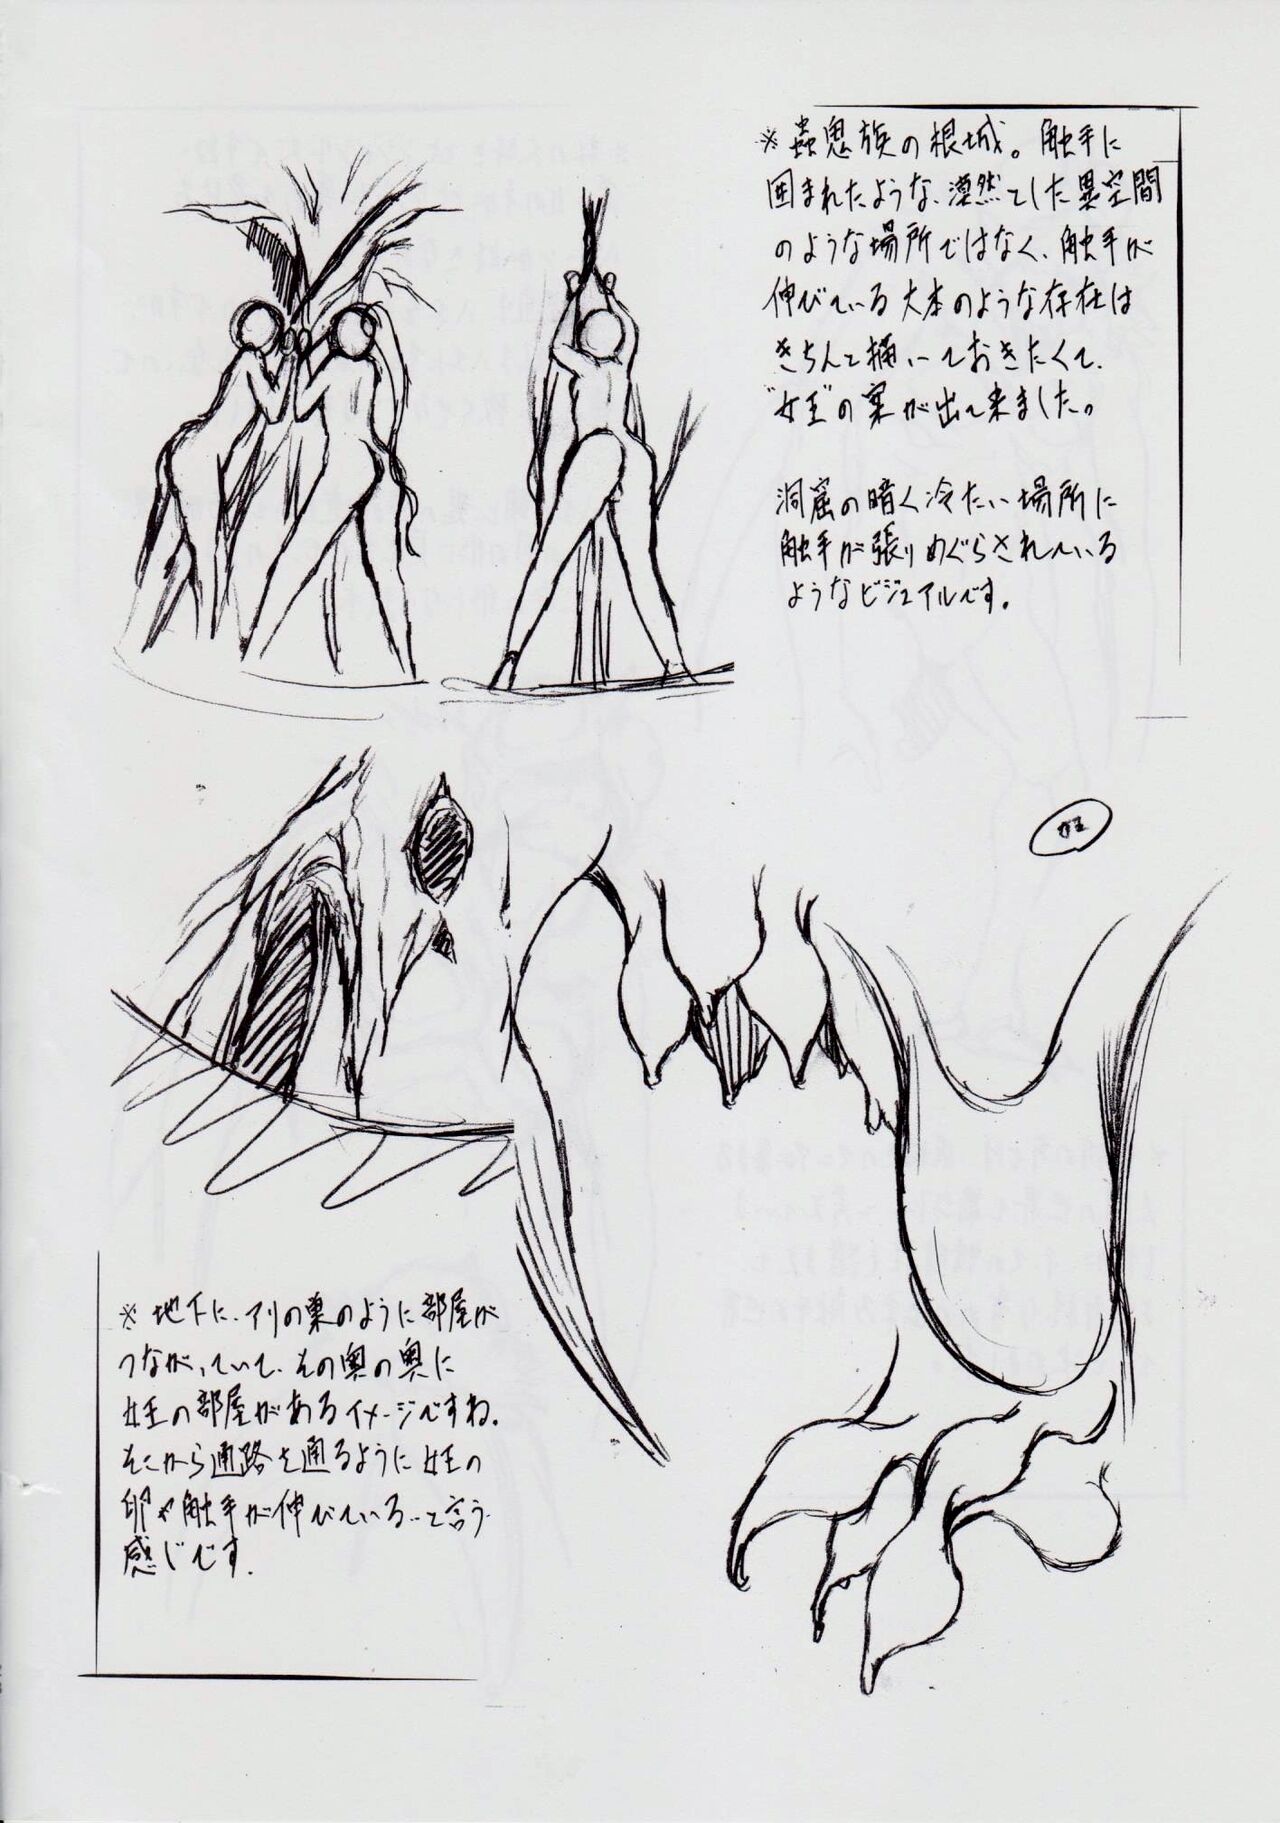 ※ 蟲鬼族の根城。触手に
囲まれたような、漠然とした異空間
のような場所ではなく、触手が
伸びている大本のような存在は
きちんと描いておきたくて、
"女王"の巣が出て来ました。
洞窟の暗く冷たい場所に
触手が張りめぐらされている
ようなビジュアルです。
女王
※ 地下に、アリの巣のように部屋が
つながっていて、その奥の奥に
女王の部屋があるイメージですね。
そこから通路を通るように女王の
卵や触手が伸びている…と言う
感じです。